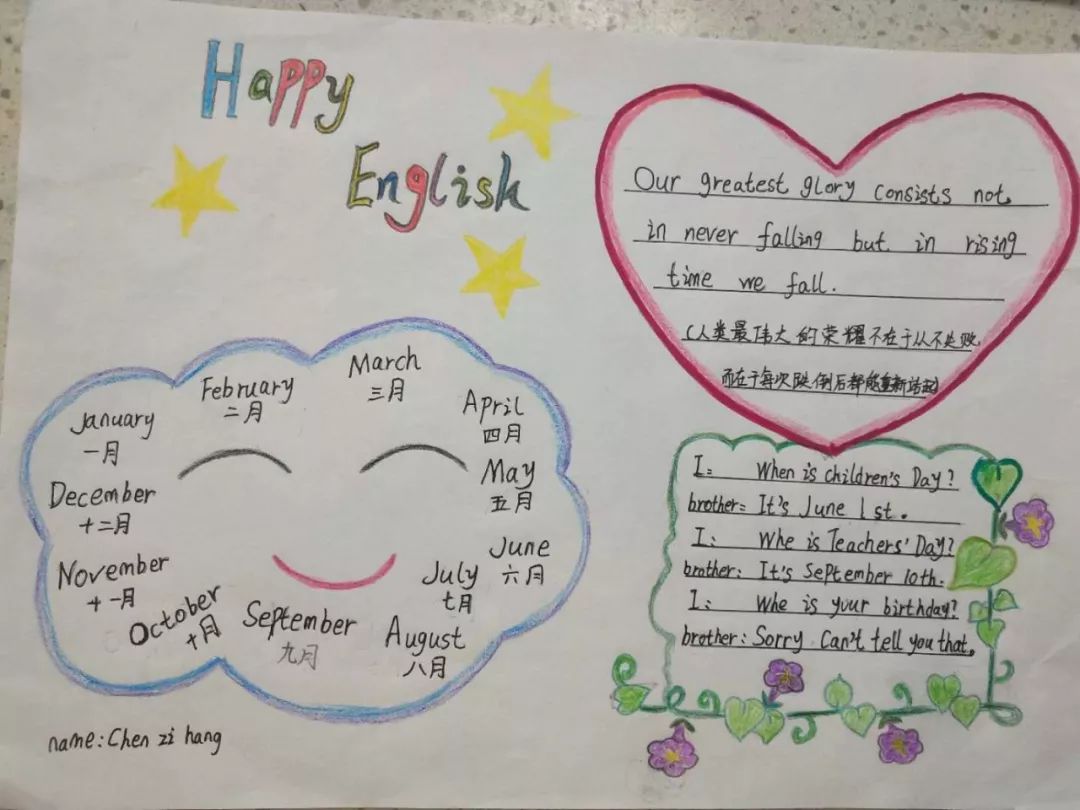 Happy
English
Our greatest glory consists not
in never falling but in rising
time we fall.
(人类最伟大的荣耀不在于从不失败,
而在于每次跌倒后都能重新站起)
January
一月
February
二月
March
三月
April
四月
May
五月
June
六月
July
七月
August
八月
September
九月
October
十月
November
十一月
December
十二月
I: When is children's Day?
brother: It's June 1st.
I: Whe is Teachers' Day?
brother: It's September 10th.
I: Whe is your birthday?
brother: Sorry. Can't tell you that.
name: Chen zi hang